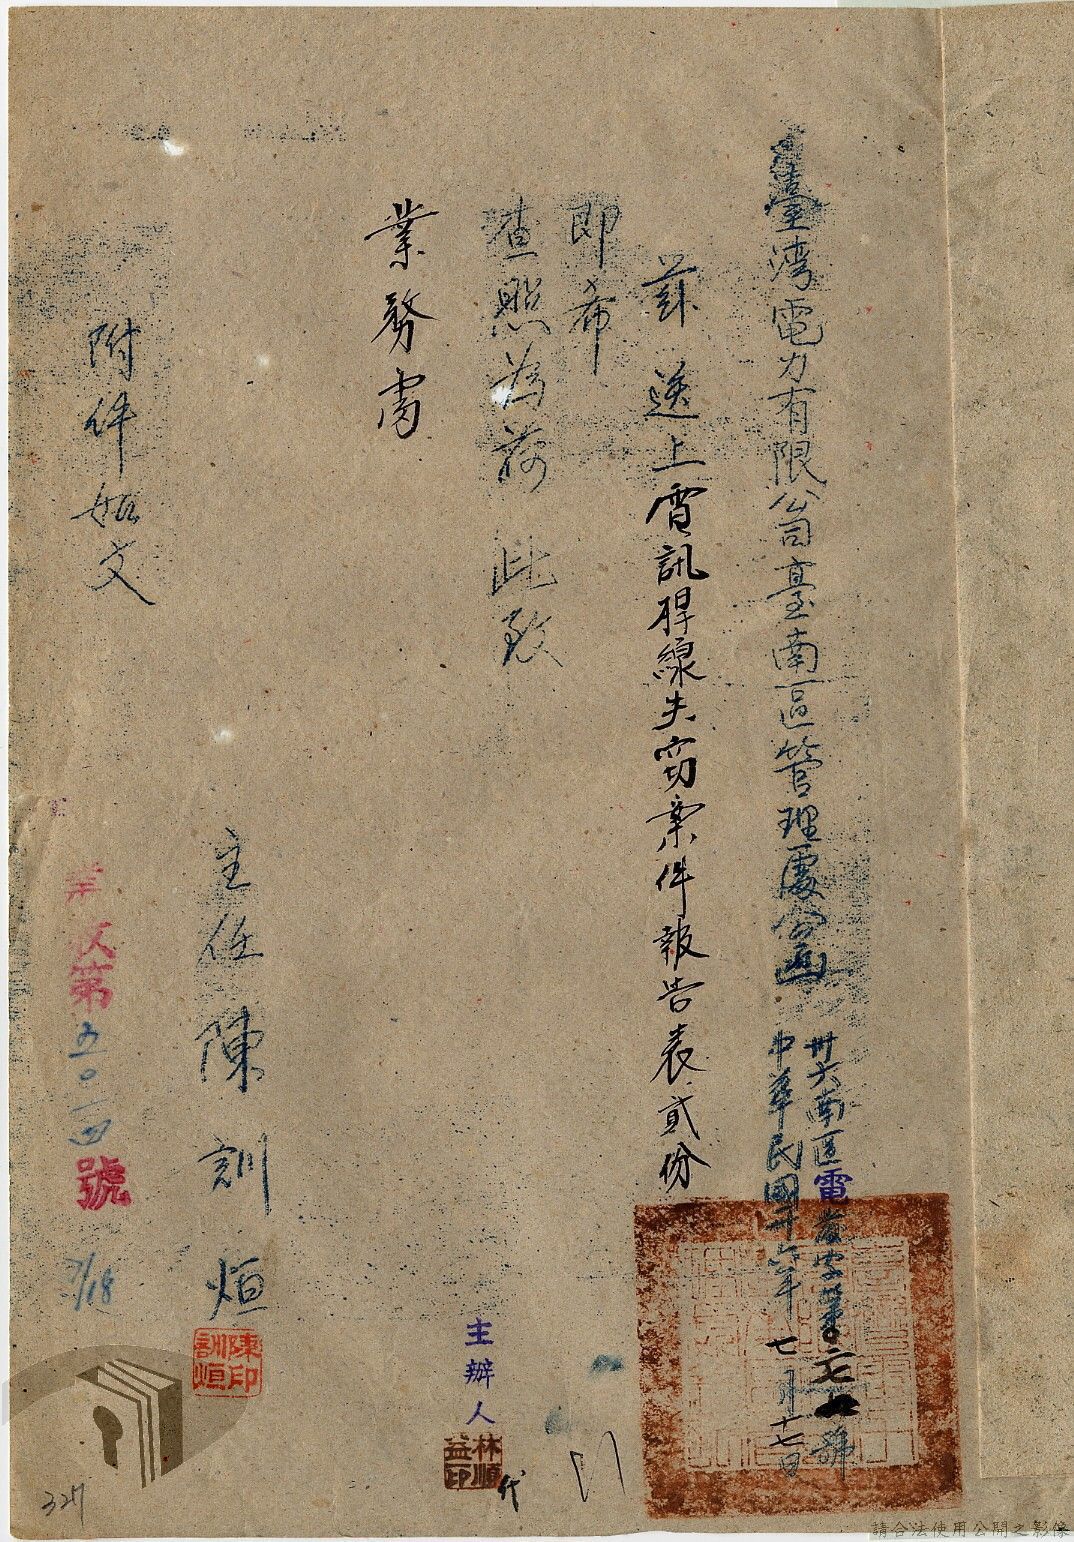 臺湾電力有限公司臺南區管理處公函
卅六南區電營字第
中華民國卅六年七月十七日
茲送上電訊桿線失窃案件報告表貳份
即希
查照為荷 此致
業務處
主任陳訓烜
陳訓烜印
附件如文
業收第五〇一四號
7/18
主辦人
林順益印
代
327
請合法使用公開之影像